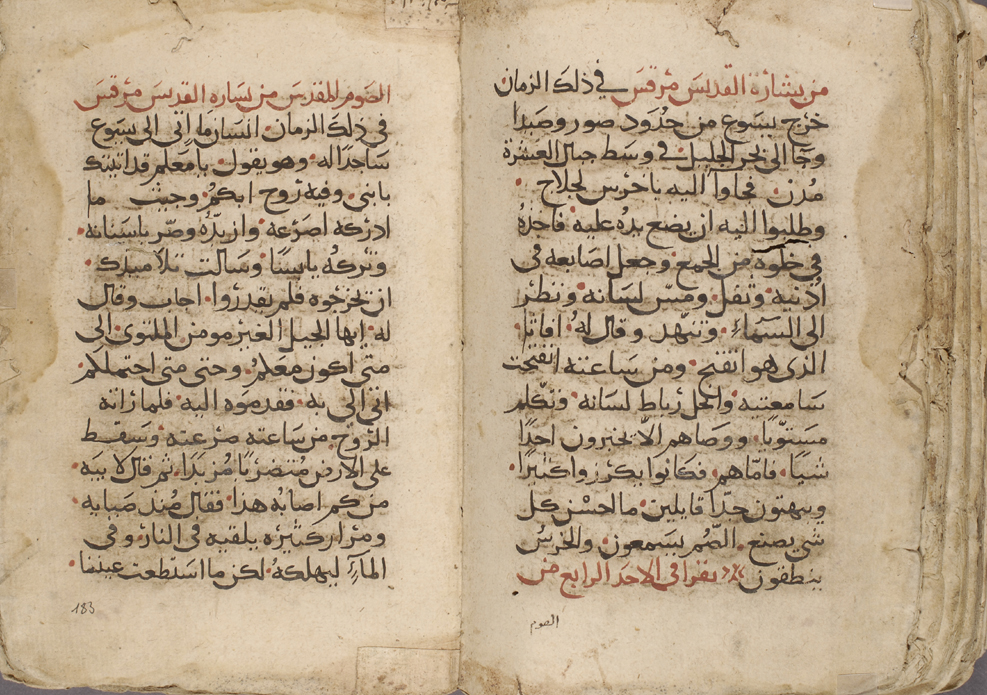 من بشارة القديس مرقس في ذلك الزمان
خرج يسوع من حدود صور وصيدا
وجا الى بحر الجليل في وسط جبال العشرة
مدن فجاوا اليه باخرس لجلاج
وطلبوا اليه ان يضع يده عليه فاخذه
في خلوة من الجمع وجعل اصابعه في
اذنيه وتفل ومس لسانه ونظر
الى السماء وتنهد وقال له افاتا
الذي هو انفتح ومن ساعته انفتحت
سامعتيه وانحل رباط لسانه وتكلم
مستويا ووصاهم الا يخبرون احدا
شيا فامّاهم فكانوا يكرزوا كثيرا
ويبهتون جدا قايلين ما احسن كل
شي يصنع الصم يسمعون والخرس
ينطقون يقرا في الاحد الرابع من
الصوم
الصوم المقدس من بشاره القديس مرقس
في ذلك الزمان انسان ما اتى الى يسوع
ساجدا له وهو يقول يا معلم قد اتيتك
بابني وفيه روح ابكم وحيث ما
ادركه اصرعه وازبده وصر باسنانه
وتركه يابسا وسالت تلاميذك
ان يخرجوه فلم يقدروا اجاب وقال
له ايها الجيل الغير مومن الملتوي الى
متى اكون معكم وحتى متى احتملكم
اتي الي به فقدموه اليه فلما راته
الروح من ساعته صرعته وسقط
على الارض متضربا مزبدا ثم قال لابيه
من كم اصابه هذا فقال منذ صبايه
ومرار كثيره يلقيه في النار وفي
الماء ليهلكه لكن ما استطعت عينا
183